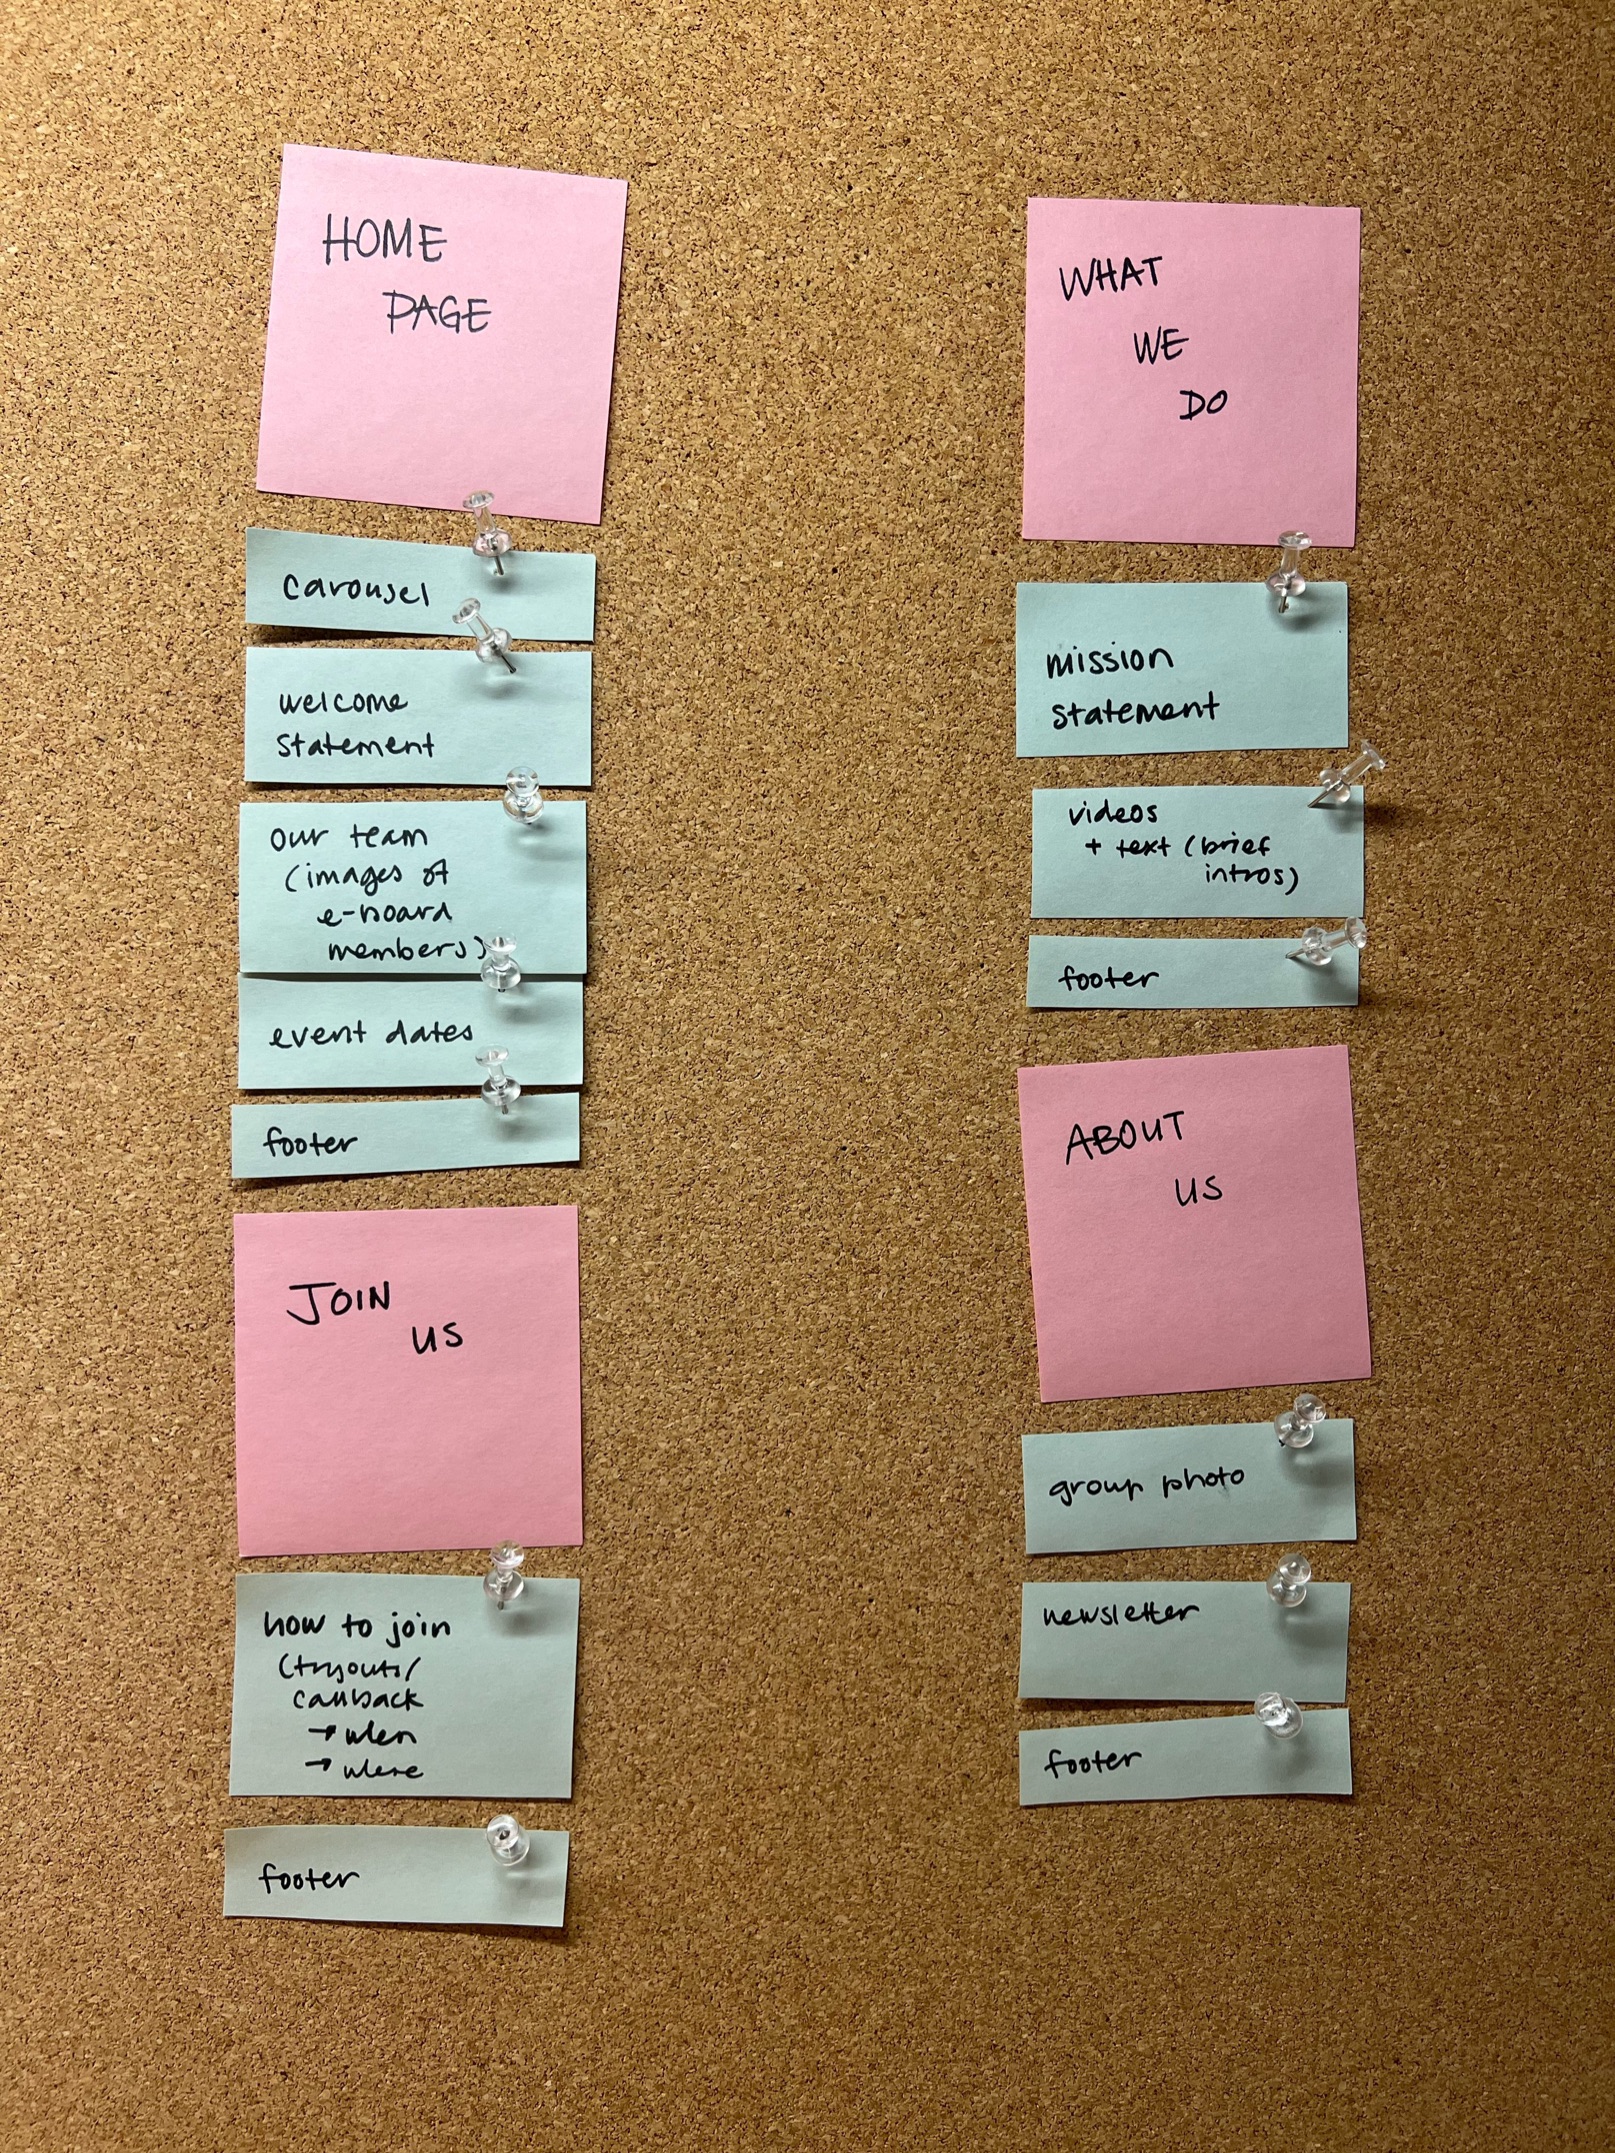 HOME
PAGE
carousel
welcome
statement
our team
(images of
e-board
members)
event dates
footer
JOIN
US
how to join
(tryouts/
callback
→ when
→ where
footer
WHAT
WE
DO
mission
statement
videos
+ text (brief
intros)
footer
ABOUT
US
group photo
newsletter
footer